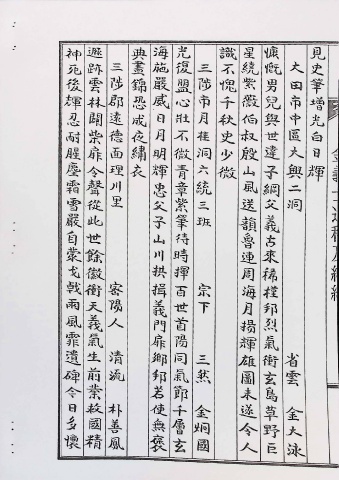 見史筆增光白日輝
大田市中區大興二洞 省雲 金大泳
慷慨男兒與世違子綱父義古來稀撑邦烈氣衝玄島草野巨
星繞紫薇伯叔殷山風送韻魯連周海月損輝雄圖未遂令人
識不愧千秋史少微
三陟市月桂洞六統三班 宗下 三然 金炯國
光復盟心壯不微青章紫筆待時揮百世首陽同氣節千層玄
海施嚴威日月明輝忠父子山川拱揖義門扉鄉邦若使無褒
典晝錦恐成夜繡衣
三陟郡遠德面理川里 密陽人 清流 朴善鳳
遯跡雲林關柴扉令聲從此世餘徽衝天義氣生前業救國精
神死後輝忍耐腥塵霜雪嚴自蒙戈戟雨風霏遺碑今日多懷